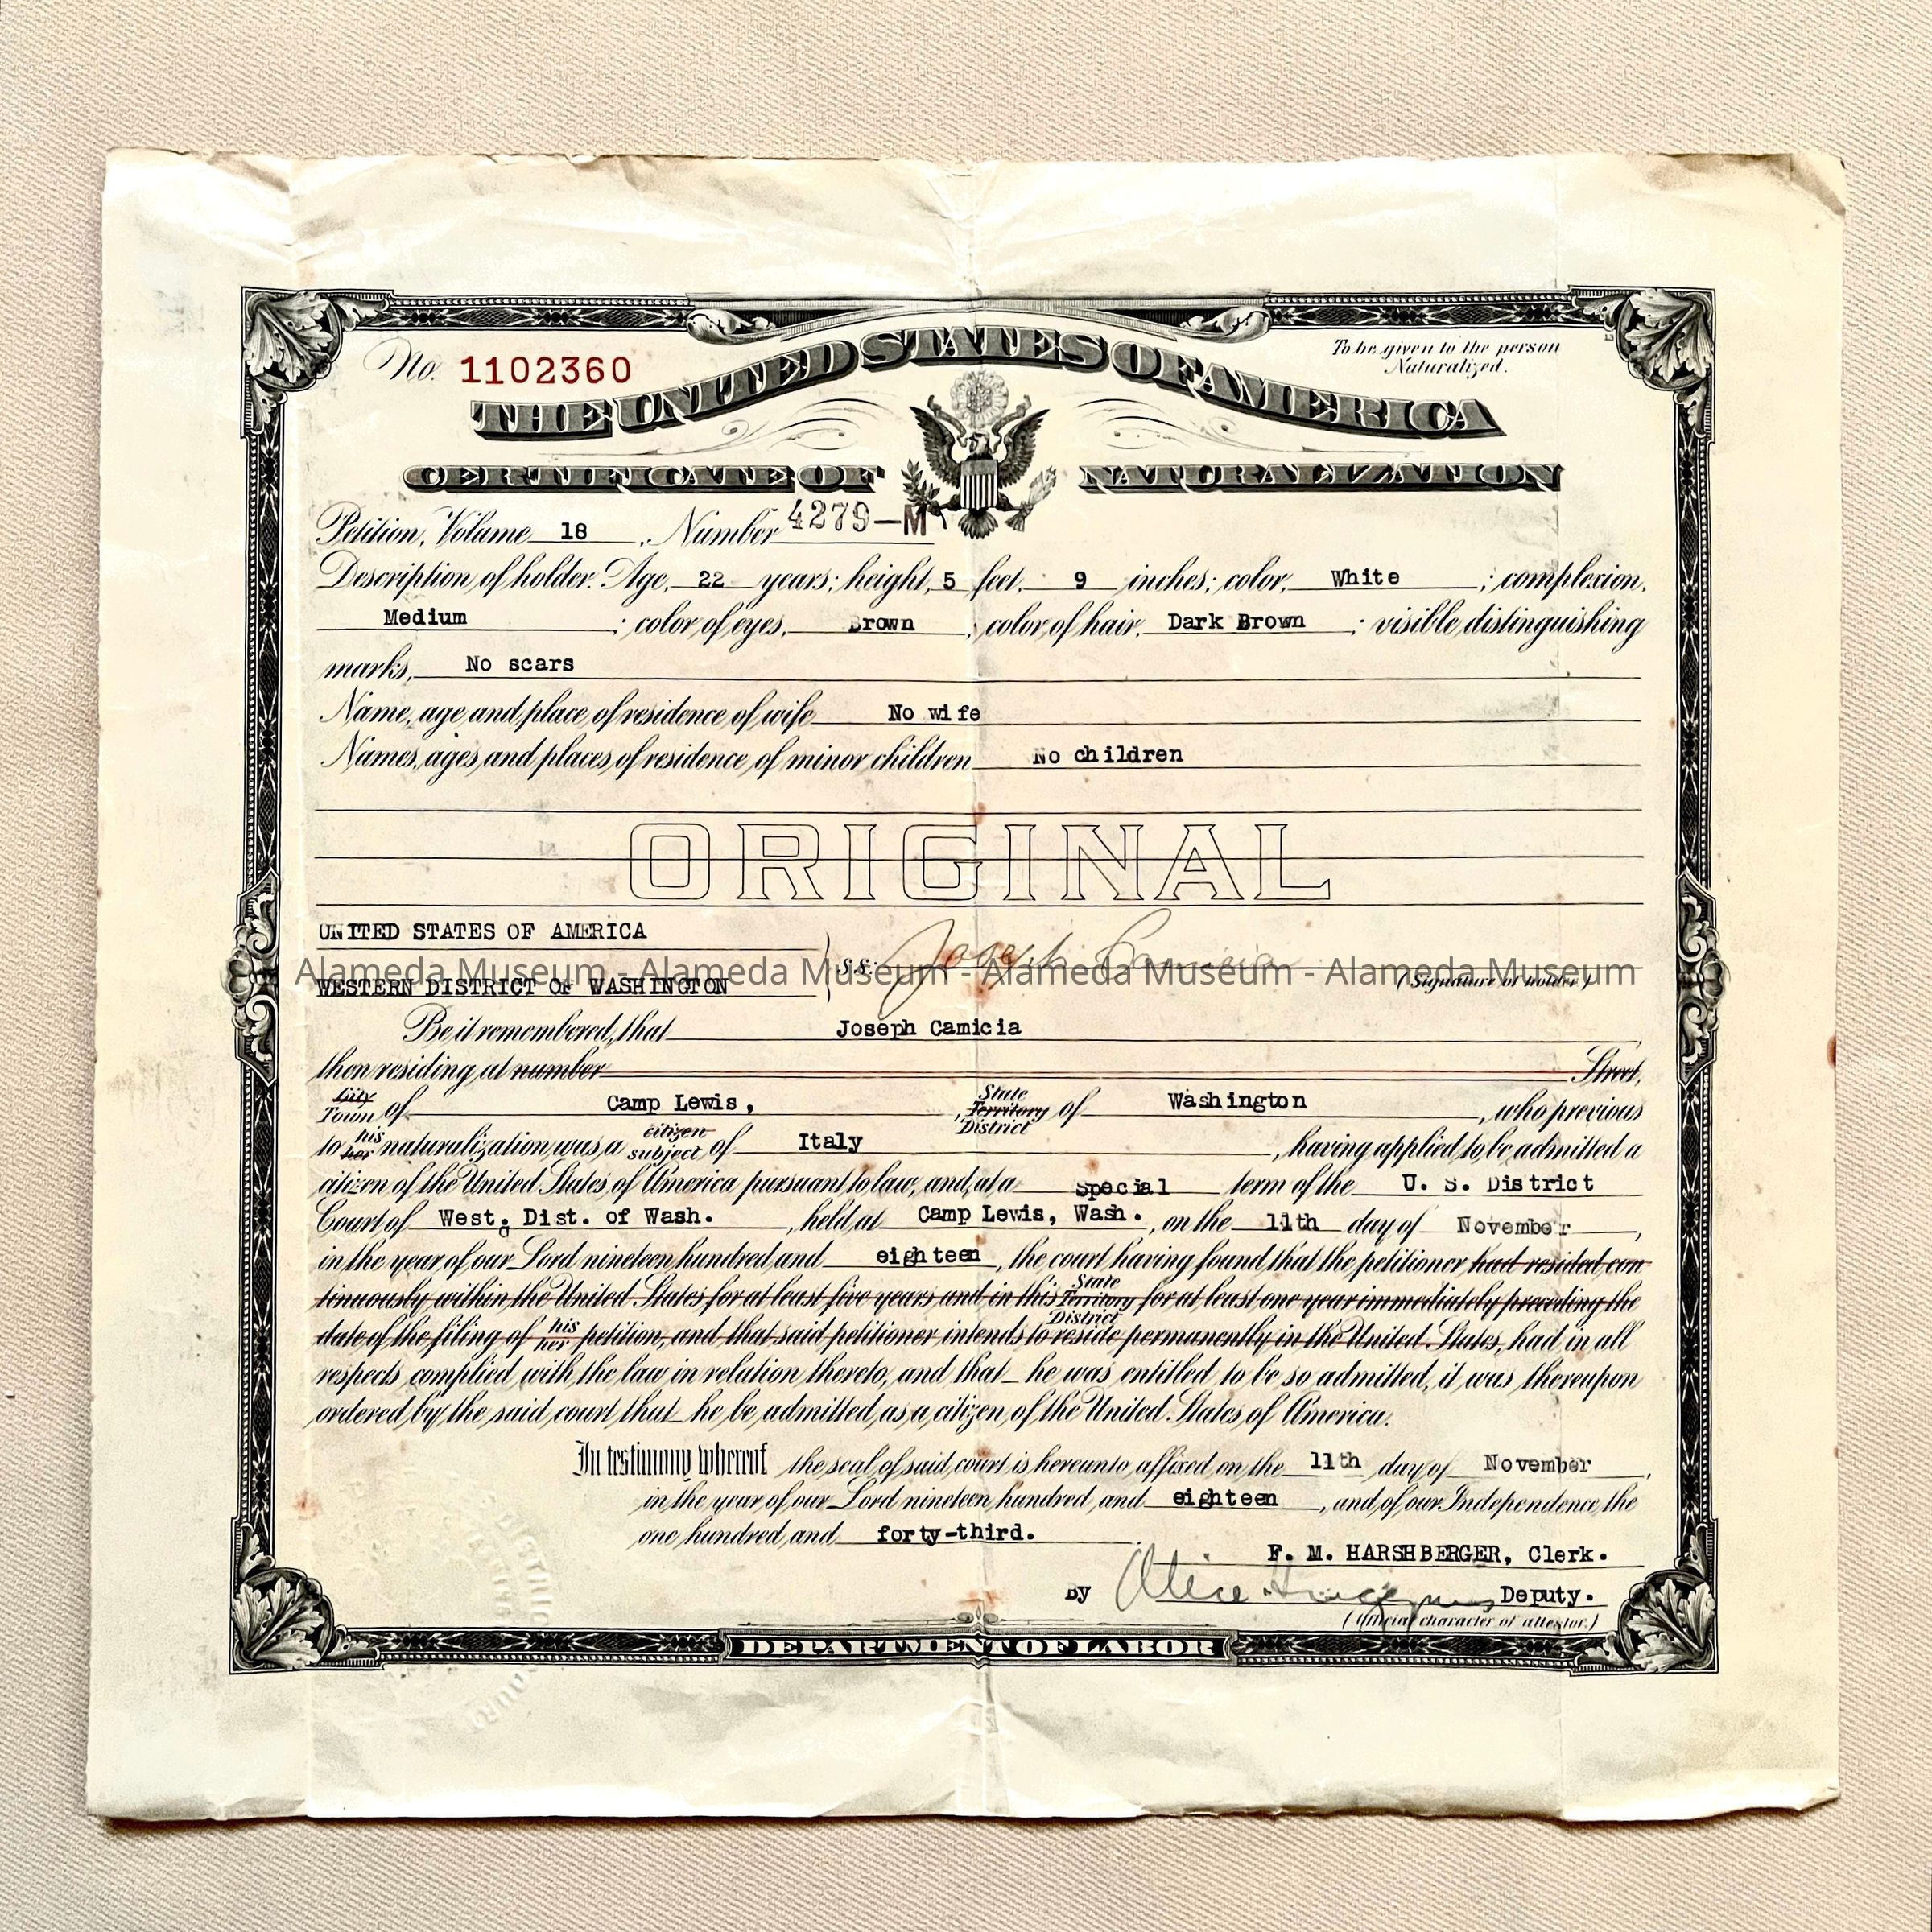 No. 1102360
To be given to the person
Naturalized.
THE UNITED STATES OF AMERICA
CERTIFICATE OF NATURALIZATION
Petition, Volume 18, Number 4279-M
Description of holder. Age, 22 years; height, 5 feet, 9 inches; color, White; complexion,
Medium; color of eyes, Brown; color of hair, Dark Brown; visible distinguishing
marks, No scars
Name, age and place of residence of wife No wife
Names, ages and places of residence of minor children No children
ORIGINAL
UNITED STATES OF AMERICA
WESTERN DISTRICT OF WASHINGTON
S.S.: Joseph Camicia
(Signature of holder)
Alameda Museum - Alameda Museum - Alameda Museum - Alameda Museum
Be it remembered, that Joseph Camicia
then residing at number Street,
City Town of Camp Lewis, State Territory District of Washington, who previous
to his her naturalization was a citizen subject of Italy, having applied to be admitted a
citizen of the United States of America pursuant to law, and, at a Special term of the U. S. District
Court of West. Dist. of Wash., held at Camp Lewis, Wash., on the 11th day of November,
in the year of our Lord nineteen hundred and eighteen, the court having found that the petitioner had resided con
tinuously within the United States for at least five years and in this State Territory District for at least one year immediately preceding the
date of the filing of his her petition, and that said petitioner intends to reside permanently in the United States, had in all
respects complied with the law in relation thereto, and that he was entitled to be so admitted, it was thereupon
ordered by the said court that he be admitted as a citizen of the United States of America.
In testimony whereof the seal of said court is hereunto affixed on the 11th day of November,
in the year of our Lord nineteen hundred and eighteen, and of our Independence the
one hundred and forty-third.
F. M. HARSHBERGER, Clerk.
By Alice Deputy.
(Official character of attestor.)
DEPARTMENT OF LABOR